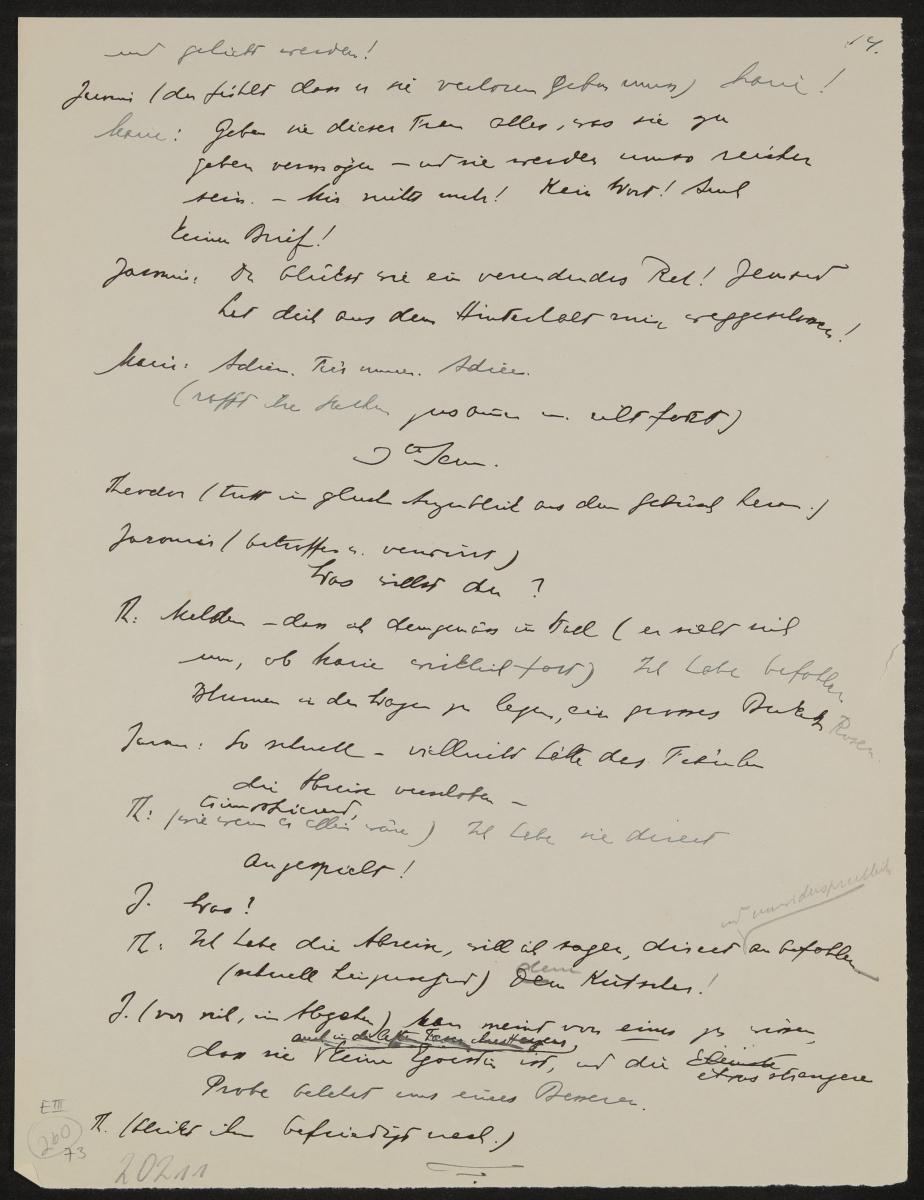 14.
und geliebt werden!
Jaromir (der fühlt dass er sie verloren geben muss) Marie!
Marie: Geben sie dieser Frau alles, was sie zu
geben vermögen – und sie werden umso reicher
sein. – Mir nichts mehr! Kein Wort! Auch
keinen Brief!
Jaromir: Du blickst wie ein verendendes Reh! Jemand
hat dich aus dem Hinterhalt mir weggeschossen!
Marie: Adieu. Für immer. Adieu.
(rafft ihre Sachen zusammen u. eilt fort)
Theodor (tritt im gleichen Augenblick aus dem Gebüsch heran.)
Jaromir (betroffen u. verwirrt)
Was willst du?
Th: Melden – dass ich demgemäss im Stall (er sieht sich
um, ob Marie wirklich fort) Ich habe befohlen
Blumen in den Wagen zu legen, ein grosses Bukett Rosen.
Jarom: So schnell – vielleicht hätte das Fräulein
die Abreise verschoben –
triumphierend,
Th: (wie wenn er allein wäre) Ich habe sie direct
angespielt!
J. Was?
und unwidersprechlich
Th: Ich habe die Abreise, will ich sagen, direct anbefohlen
(schnell hinzusetzend) dem Kutscher!
J. (vor sich, im Abgehen) Man meint von eines zu wissen,
auch in der letzten Faser ihres Herzens,
dass sie keine Egoistin ist, und die
etwas strengere
Probe belehrt uns eines Besseren.
Th. (blickt ihm befriedigt nach.)
E III
260
73
20211